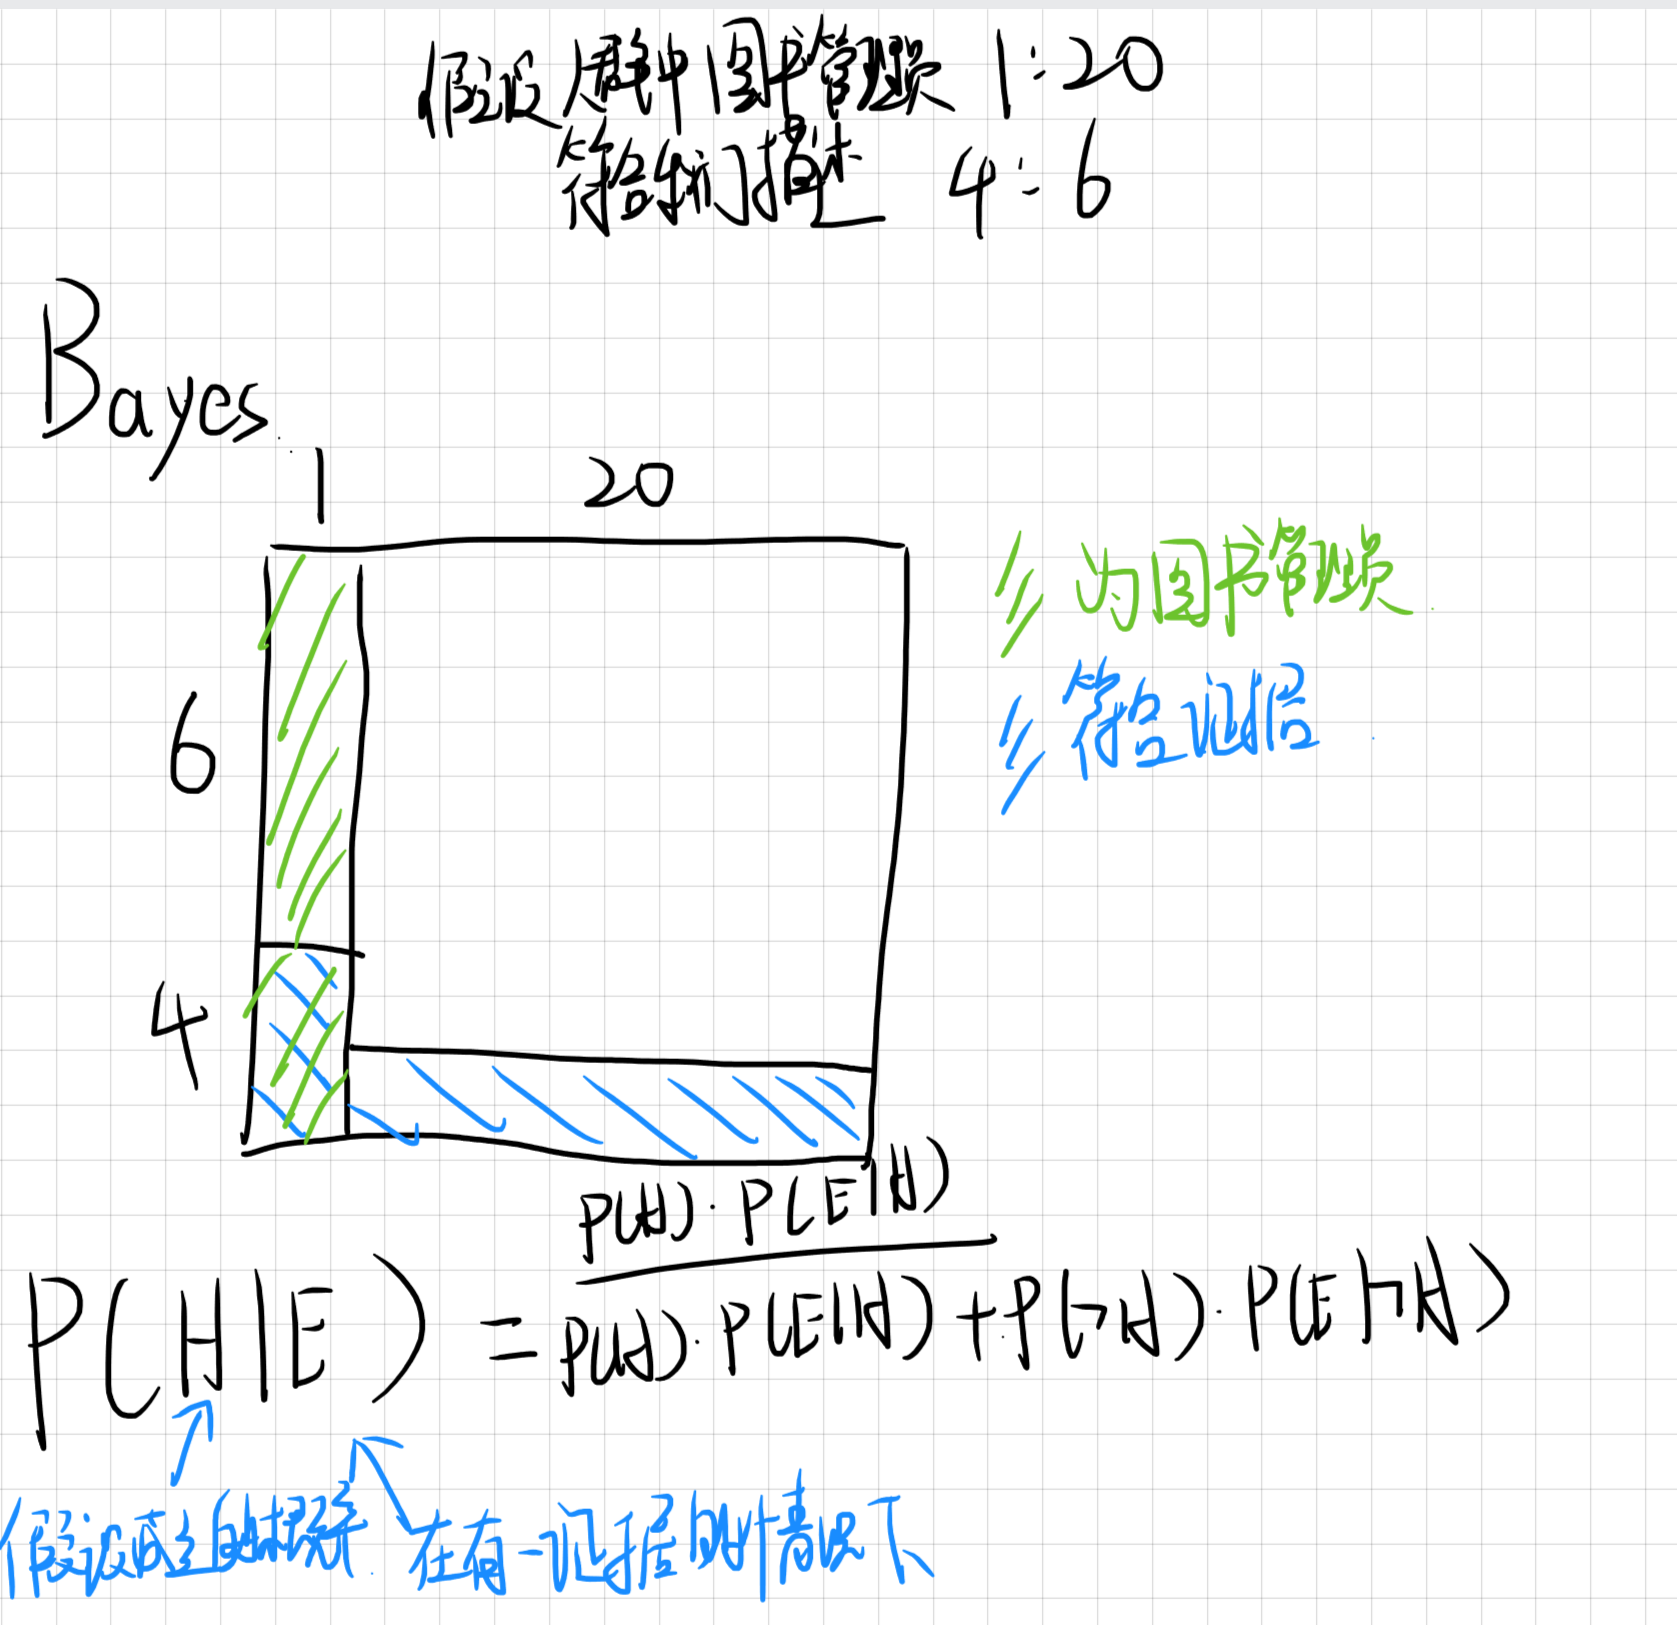 假设人群中图书管理员 1:20
符合我们描述 4:6
Bayes
1 20
为图书管理员
6
符合证据
4
P(H)·P(E|H)
P(H|E) = P(H)·P(E|H)+P(¬H)·P(E|¬H)
假设成立的概率 在有一证据的情况下